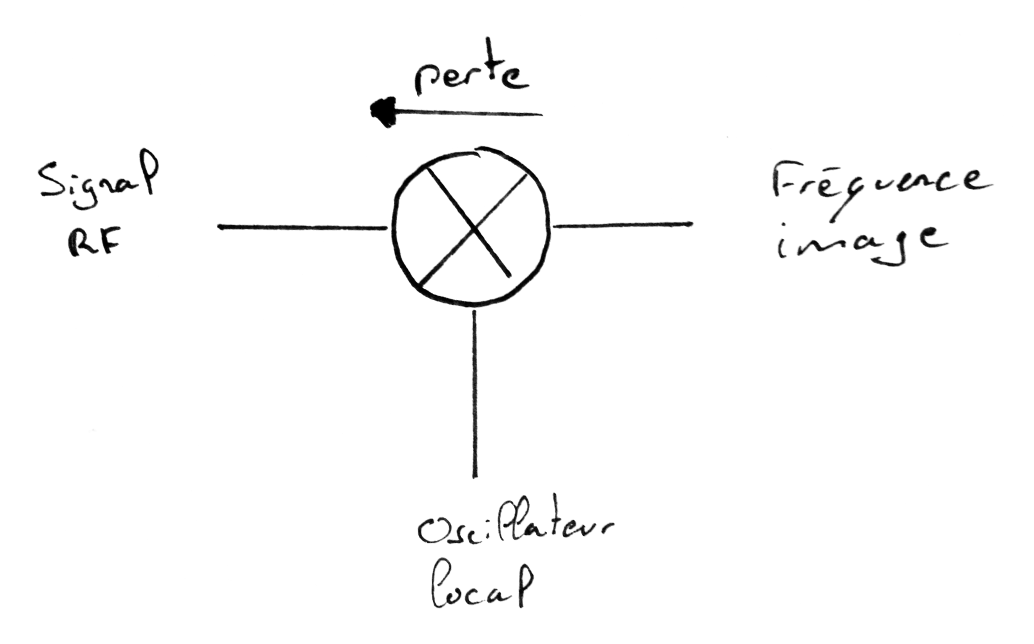 perte
Signal
RF
Fréquence
image
Oscillateur
local